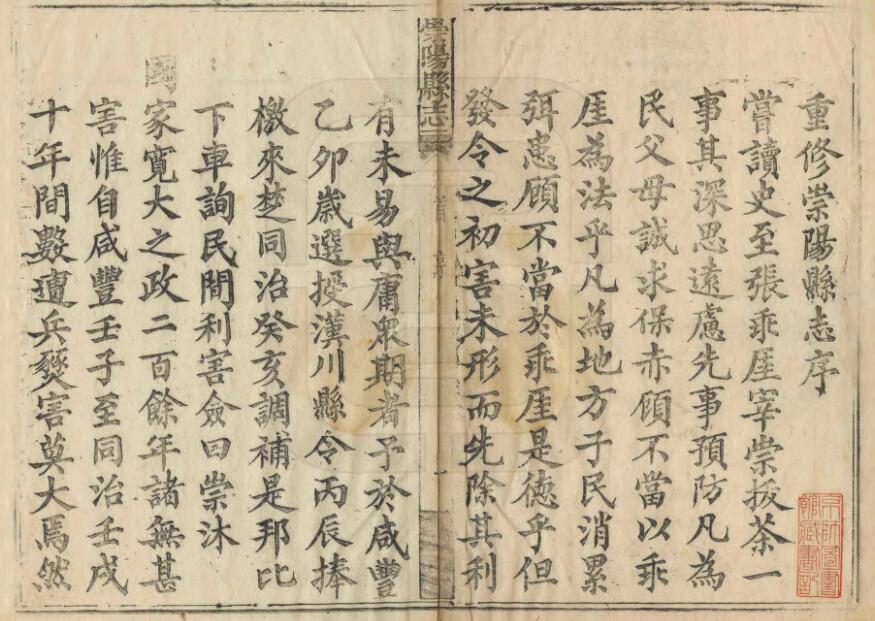 重修崇陽縣志序
嘗讀史至張乖厓宰崇拔茶一
事其深思遠慮先事預防凡為
民父母誠求保赤顧不當以乖
厓為法乎凡為地方子民消累
弭患顧不當於乖厓是德乎但
發令之初害未形而先除其利
崇陽縣志
有未易與庸眾期者予於咸豐
乙卯歲選授漢川縣令丙辰捧
檄來楚同治癸亥調補是邦比
下車詢民間利害僉曰崇沐
國
家寬大之政二百餘年諸無甚
害惟自咸豐壬子至同治壬戌
十年間數遭兵燹害莫大焉然
京師圖書
館藏書記